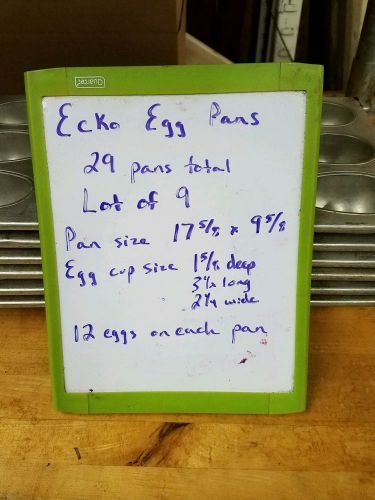 Quartet
Ecko Egg Pans
29 pans total
Lot of 9
Pan size 17 5/8 x 9 5/8
Egg cup size 1 5/8 deep
3 1/2 long
2 1/4 wide
12 eggs on each pan